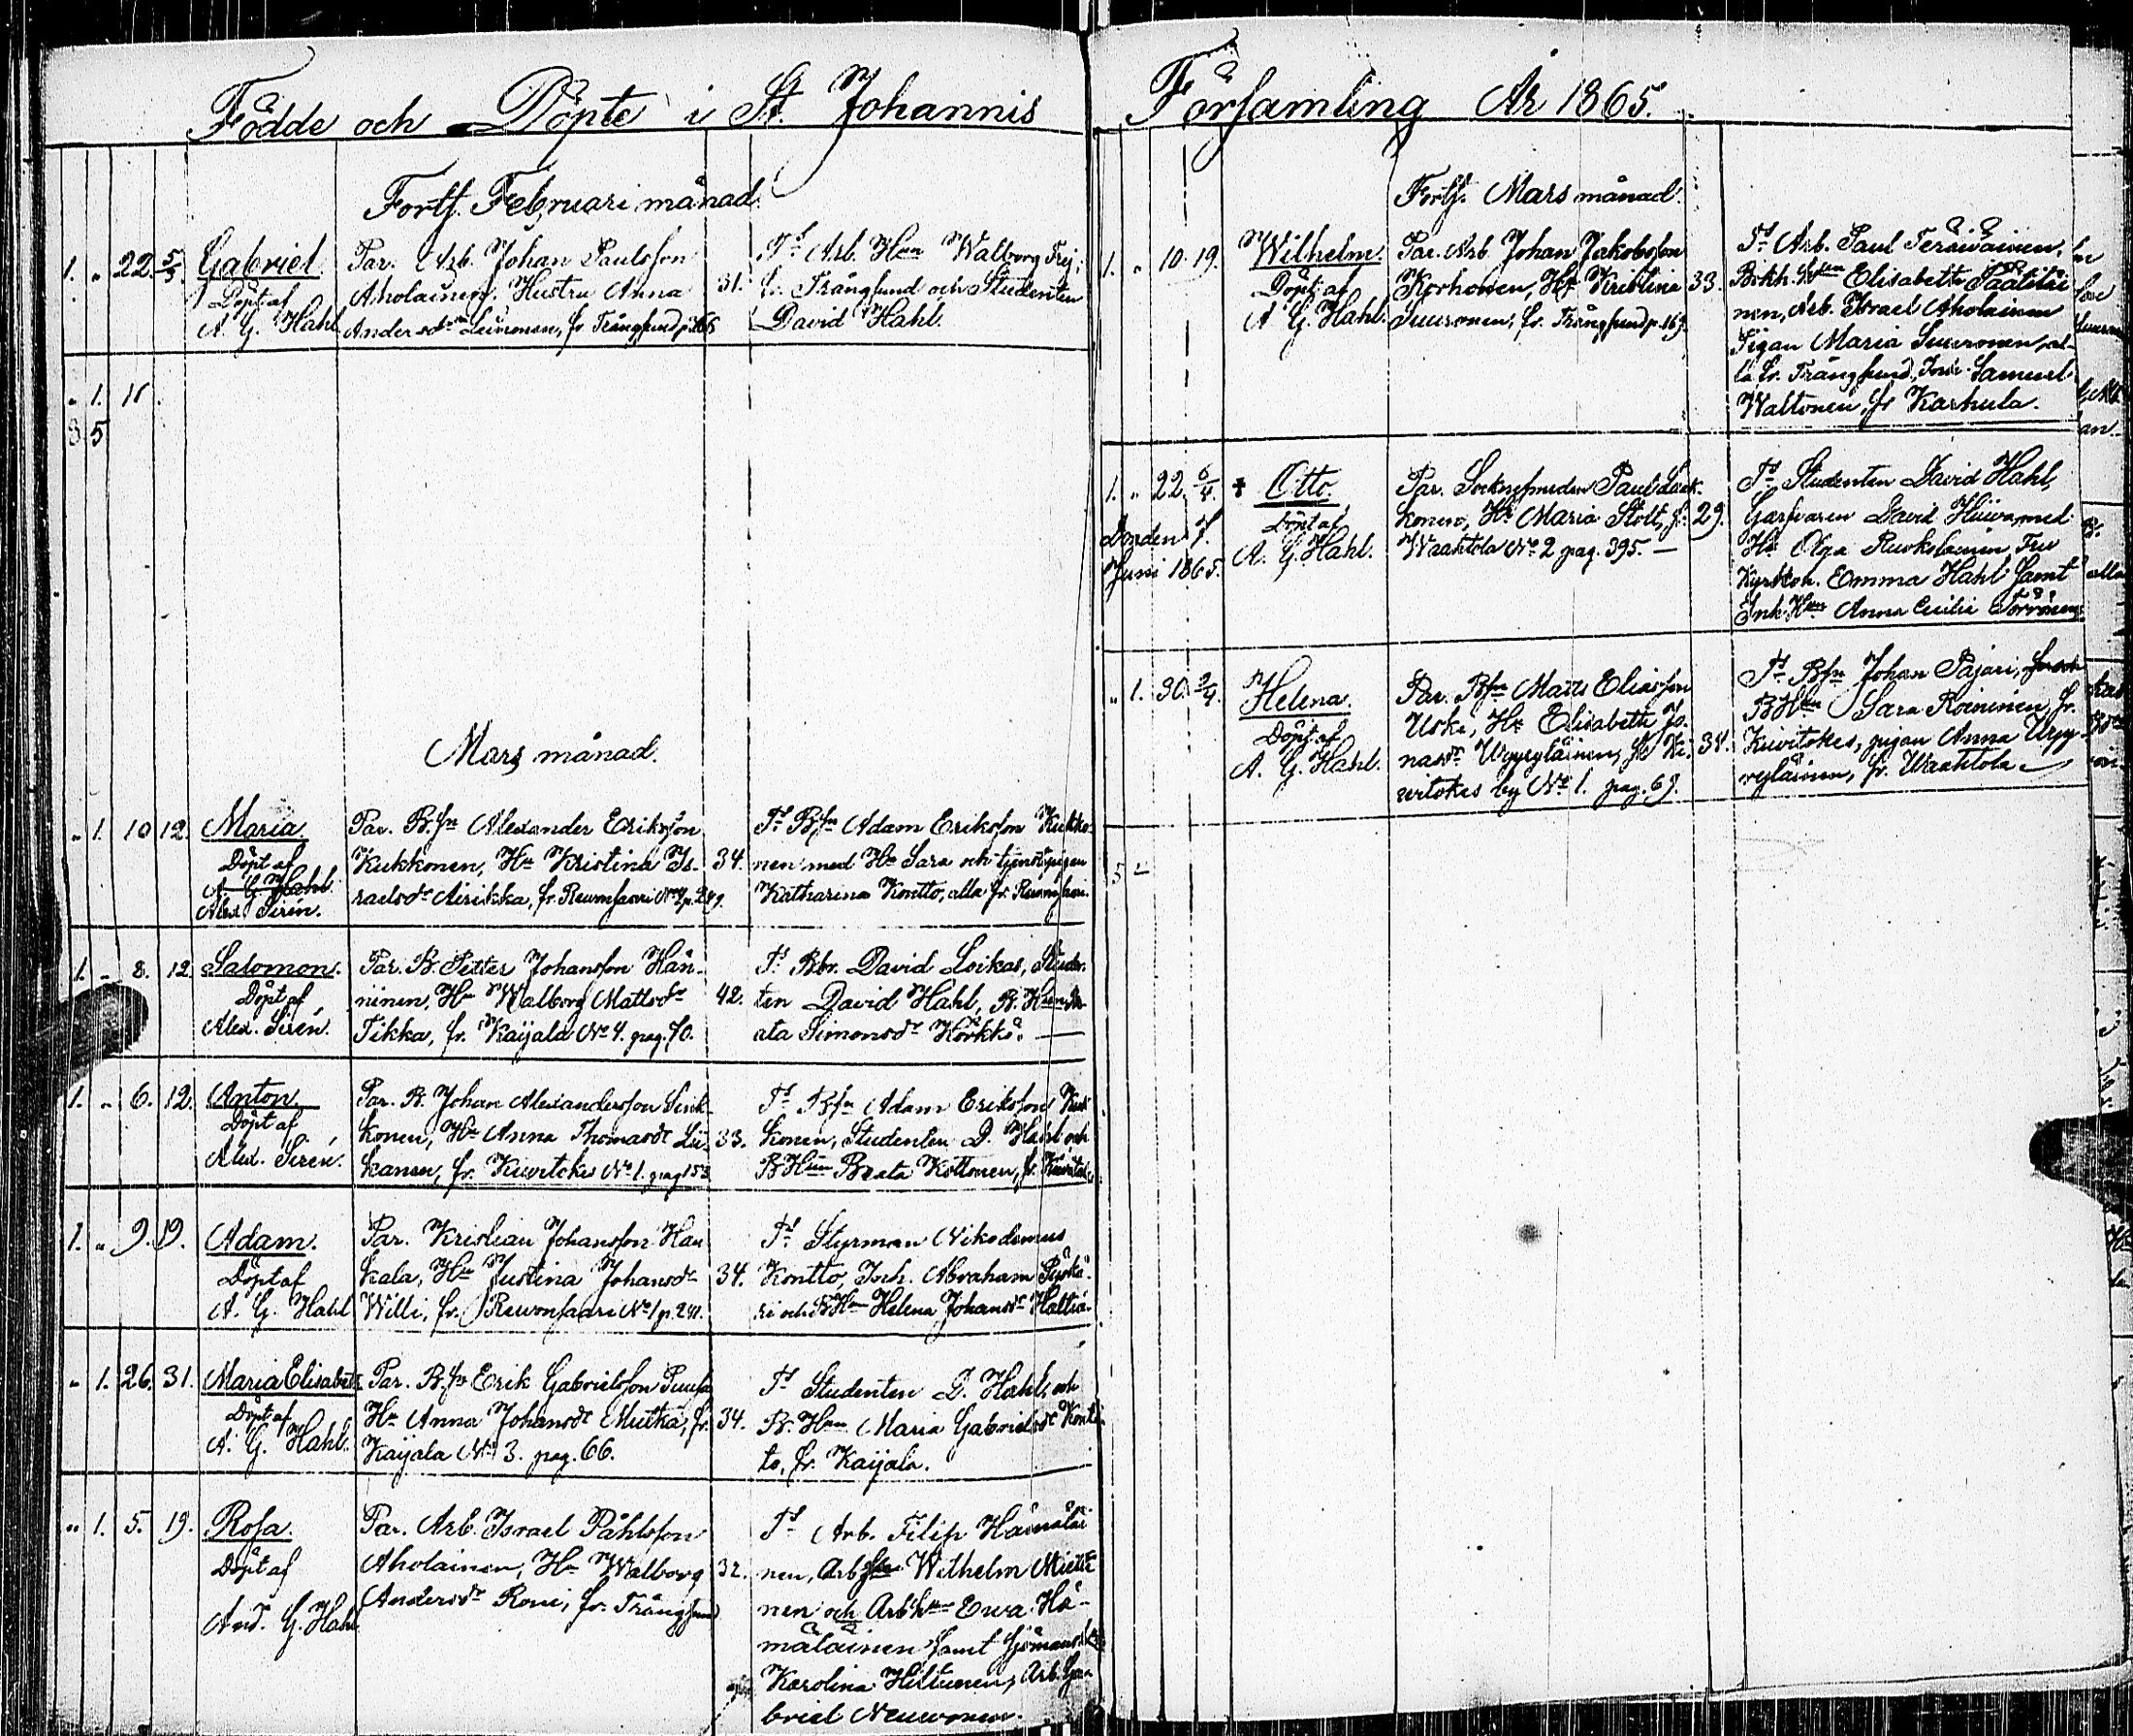 Födde och Döpte i St. Johannis Församling År 1865.
Forts. Februari månad.
1. " 22. 5/3 Gabriel. Par. Arb. Johan Paulsson 31. Ts Arb. Hun Walborg
Döpt af Aholainen, Hustru Anna fr. Trångsund och Studenten
A. G. Hahl Andersdr fr. Trångsund David Hahl.
" 1. 11
8 5
Mars månad.
" 1. 10 12. Maria. Par. B.sn Alexander Eriksson 34. Ts B.sn Adam Eriksson Kukko-
Döpt af Kukkonen, Hu Kristina Is- nen med Hu Sara och tjenstepigan
A. G. Hahl raelsdr Airikka, fr. Revonsaari Katharina Kontto, alla fr.
Alex Sirén.
1. " 8. 12 Salomon. Par. B. Petter Johansson Hän- 42. Ts Bbr. David Loikas, Studen-
Döpt af ninen, Hu Walborg Mattsdr ten David Hahl, B.
Alex. Sirén. Tikka, fr. Kaijala No 4. pag. 70. ata Simonsdr Hörkkö.
1. " 6. 12. Anton. Par. B. Johan Alexandersson 33. Ts B.sn Adam Eriksson Kuk-
Döpt af konen, Hu Anna Thomasdr Lii- konen, Studenten D. Hahl och
Alex. Sirén. kanen, fr. Kiwitokes No 1. pag 153 B Hun Beata Kottonen, fr.
1. " 9. 19. Adam. Par. Kristian Johansson Han 34. Ts Styrman Nikodemus
Döpt af kala, Hu Justina Johansdr Kontto, Inh. Abraham
A. G. Hahl Willi, fr. Revonsaari No 1 p. 241. ri och B Hun Helena Johansdr
" 1. 26. 31. Maria Elisabeth Par. B.sn Erik Gabrielsson 34. Ts Studenten D. Hahl, och
Döpt af Hu Anna Johansdr Mutka, fr. B. Hun Maria Gabrielsdr Kont-
A. G. Hahl. Kaijala No 3. pag. 66. to, fr. Kaijala.
" 1. 5. 19. Rosa. Par. Arb. Israel Påhlsson 32. Ts Arb. Filip Hämäläi
Döpt af Aholainen, Hu Walborg nen, Arb Wilhelm Mietti
And. G. Hahl Andersdr Roni, fr. Trångsund nen och Arbh Ewa Hä-
mäläinen samt
Karolina Hiltunen, Arb. Ga-
briel Neuvonen.
Forts. Mars månad.
1. " 10. 19. Wilhelm. Par. Arb. Johan Jakobsson 33. Ts Arb. Paul Teräwäinen,
Döpt af Korhonen, Hu Kristina Elisabeth
A G. Hahl. Suuronen, fr. Trångsund p. 169. nen, Arb. Israel Aholainen
Pigan Maria Suuronen, al-
la fr. Trångsund, Samuel
Waltonen, fr Karhula.
1. " 22. 6/4. + Otto. Par. Socknesmeden Paul 29. Ts Studenten David Hahl,
Död den 7. Döpt af konen, Hu Maria Stolt, fr. Garfvaren David med
Juni 1865. A. G. Hahl. Waahtola No 2 pag. 395. Hu Olga Fru
Emma Hahl samt
Anna Cecilia
" 1. 30. 2/4. Helena. Par. B.sn Matts Eliasson 34. Ts B.sn Johan Pajari,
Döpt af Uski, Hu Elisabeth Jo- B Hun Sara Roininen, fr.
A. G. Hahl. nasdr fr. Ki- Kiwitokes, pigan Anna
witokes by No 1. pag. 69. fr. Waahtola
5